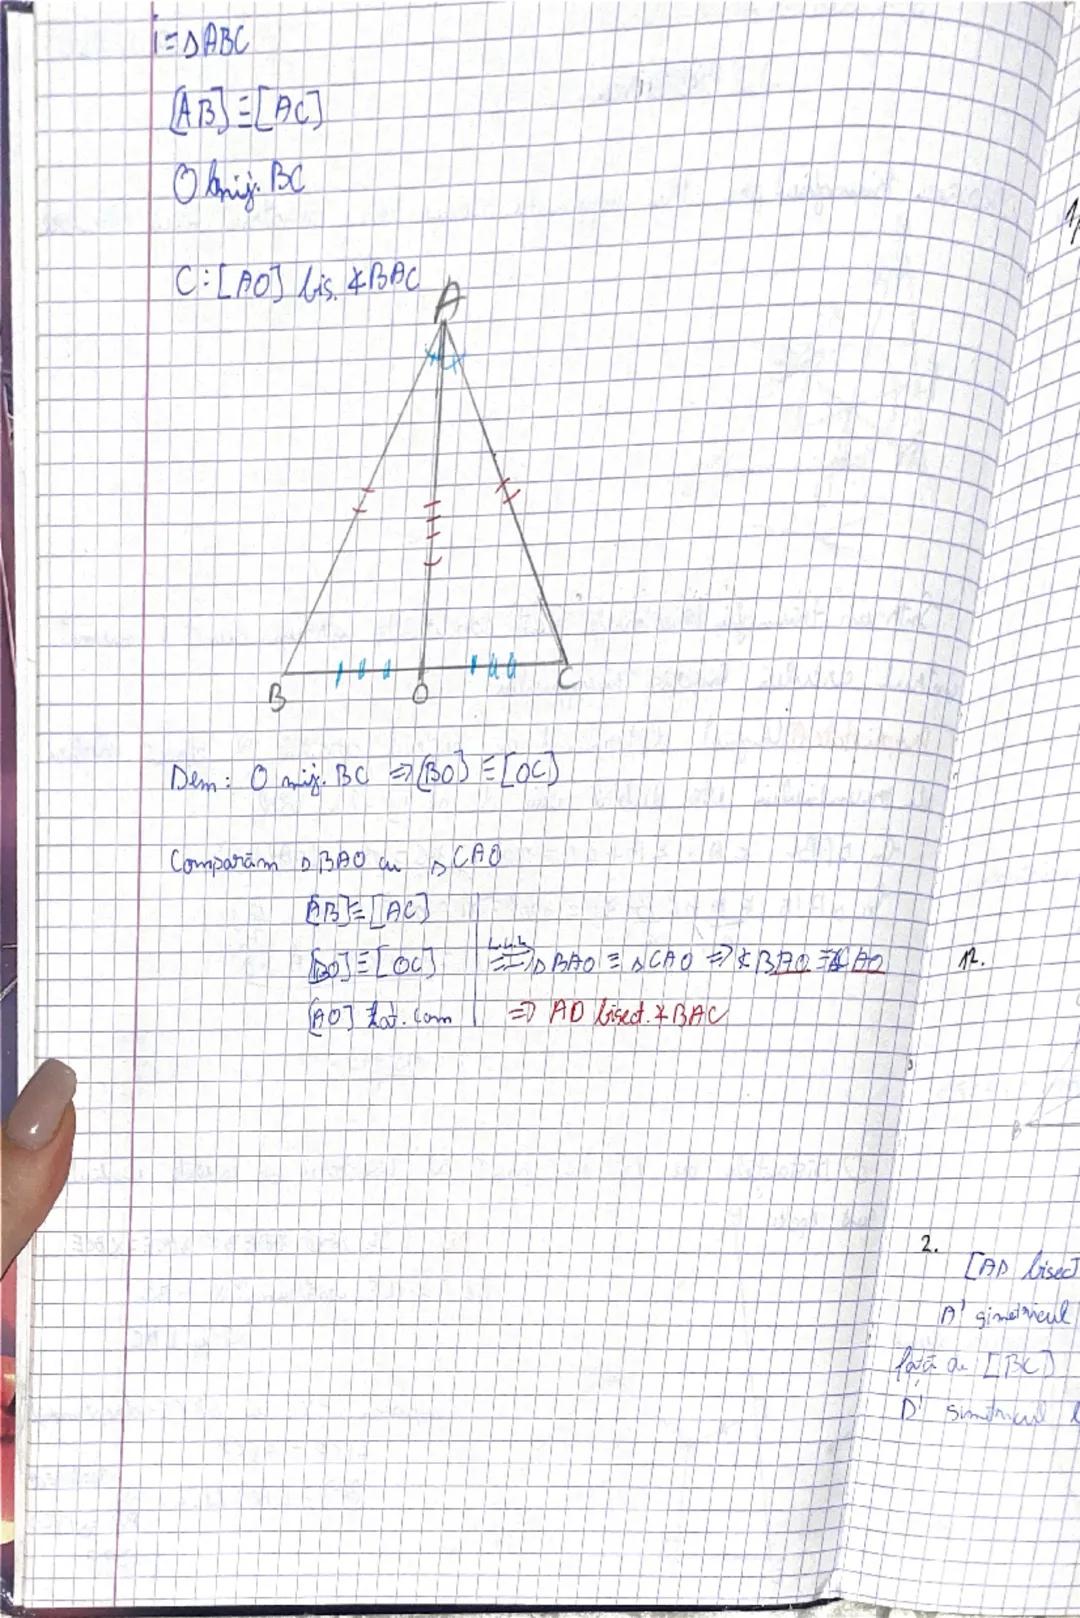 i=△ABC
[AB]≡[AC]
O mij. BC
C:[AO] bis. ∢BAC
A
B
O
C
Dem: O mij. BC ⇒[BO]≡[OC]
Comparăm △BAO cu △CAO
[AB]≡[AC]
[BO]≡[OC] L.L.L ⇒△BAO≡△CAO ⇒∢BAO≡∢CAO
[AO] lat. com ⇒ AO bisect. ∢BAC
12.
B
2.
[AD bisect
A' simetricul
față de [BC]
D' simetricul